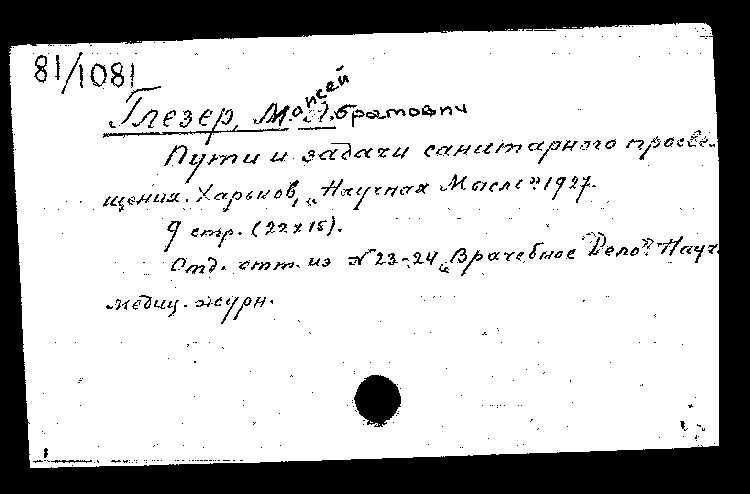 81/1081
Глезер, Моисей Абрамович
Пути и задачи санитарного просве-
щения. Харьков, „Научная Мысль“. 1927.
9 стр. (22x15).
Отд. отт. из № 23-24 „Врачебное Дело“. Науч.
медиц. журн.